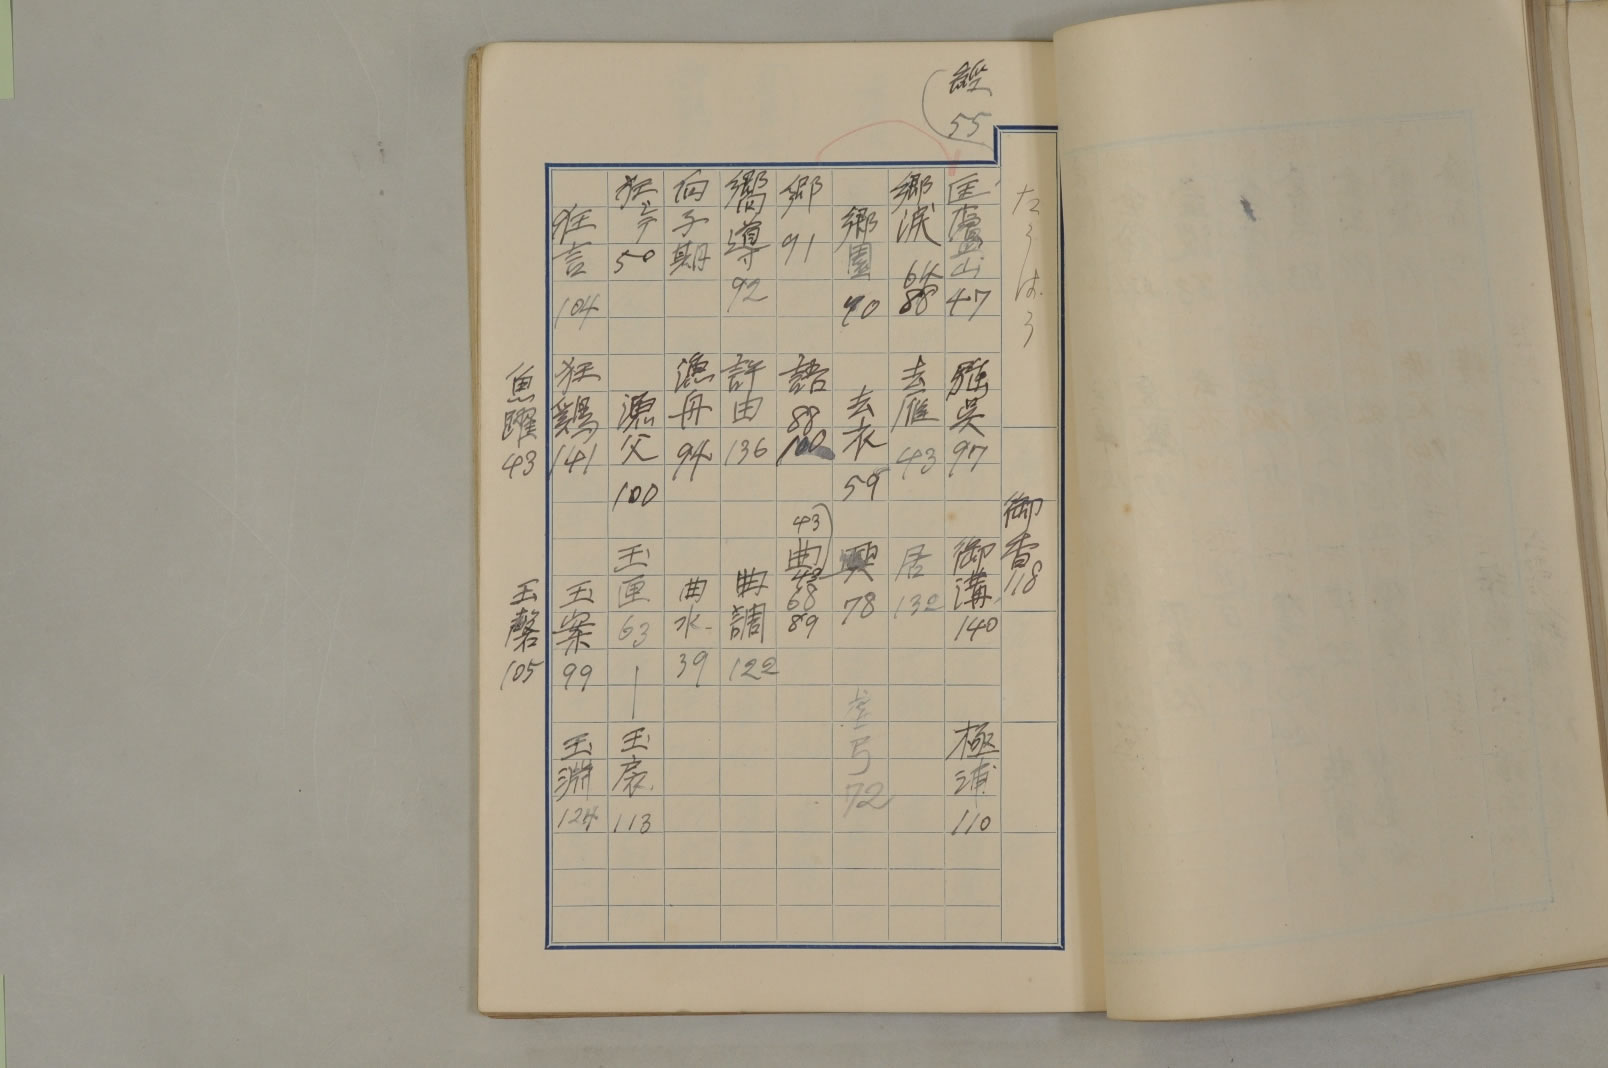 經 55
たうはう
御香 118
匡廬山 47
強呉 97
御溝 140
極浦 110
郷涙 64 88
去雁 43
居 132
郷園 90
去衣 59
興 78
虚弓 72
郷 91
語 88 100
曲 43 48 68 89
嚮導 92
許由 136
曲調 122
向子期
漁舟 94
曲水 39
50
漁父 100
玉匣 63
玉扆 113
狂言 104
狂鶏 141
玉案 99
玉淵 124
魚躍 43
玉磬 105